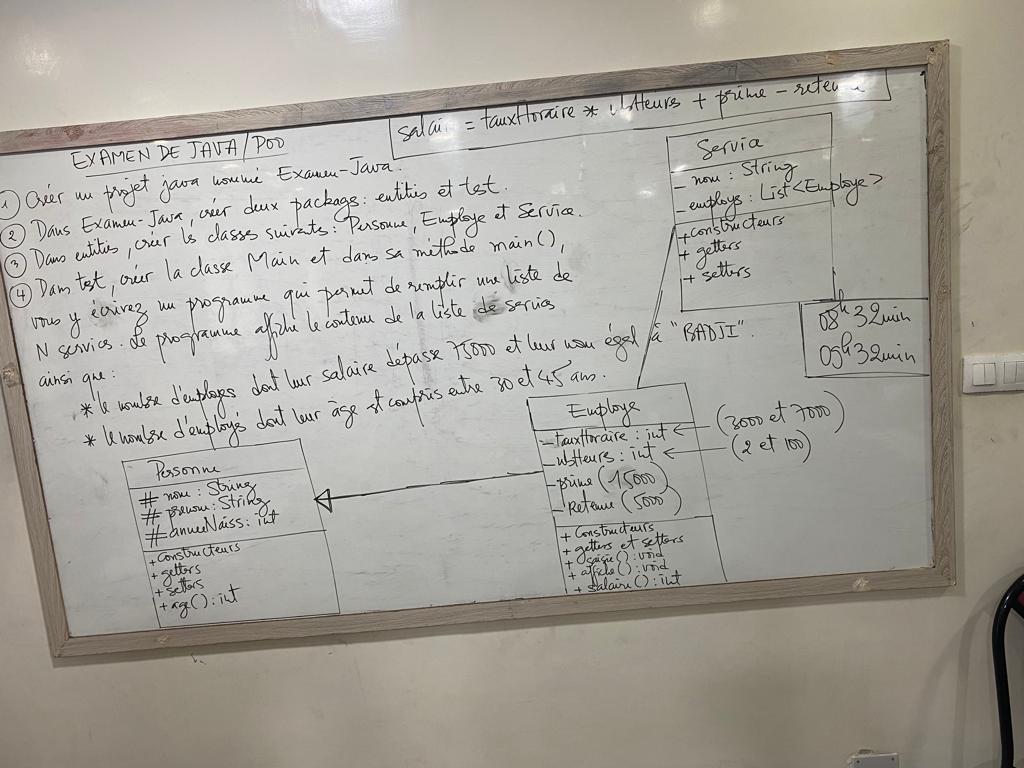 EXAMEN DE JAVA/POO
salaire = tauxHoraire * nbHeures + prime - retenue
① Créer un projet java nommé Examen-Java.
② Dans Examen-Java, créer deux packages: entities et test.
③ Dans entities, créer les classes suivantes: Personne, Employe et Service.
④ Dans test, créer la classe Main et dans sa méthode main(),
vous y écrivez un programme qui permet de remplir une liste de
N services. Le programme affiche le contenu de la liste de services
ainsi que:
* le nombre d'employés dont leur salaire dépasse 75000 et leur nom égal à "BADJI".
* le nombre d'employés dont leur âge est compris entre 30 et 45 ans.
Service
- nom : String
- employs : List<Employe>
+ constructeurs
+ getters
+ setters
08h 32min
09h 32min
Employe
- tauxHoraire : int ← (3000 et 7000)
- nbHeures : int ← (2 et 100)
- prime (15000)
- Retenue (5000)
+ Constructeurs
+ getters et setters
+ saisie() : void
+ affiche() : void
+ salaire() : int
Personne
# nom : String
# prenom : String
# anneeNaiss : int
+ constructeurs
+ getters
+ setters
+ age() : int